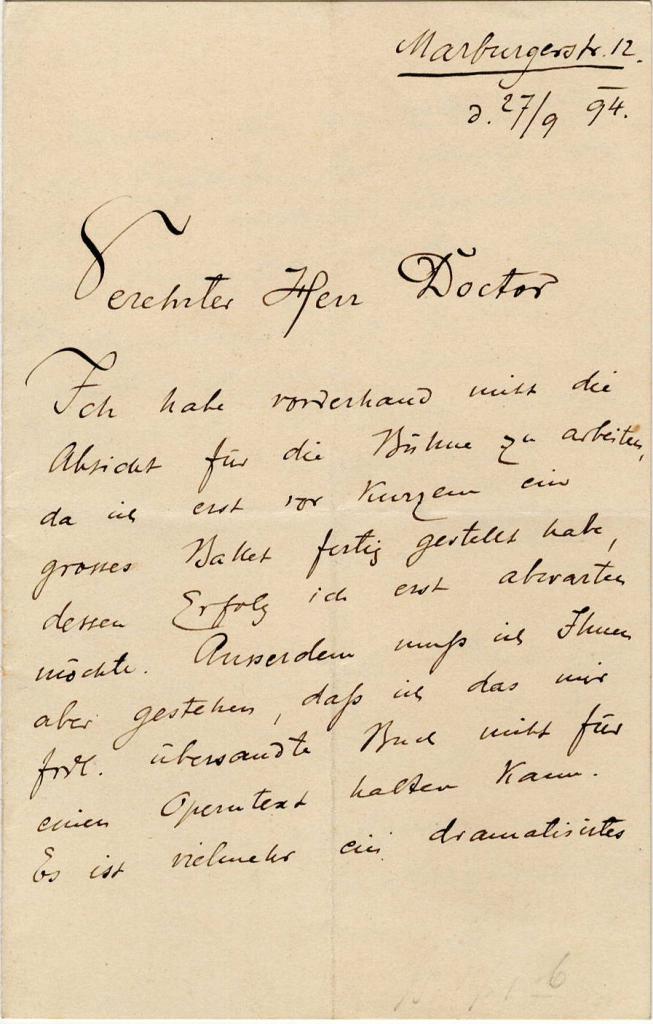 Marburgerstr. 12.
d. 27/9 94.
Verehrter Herr Doctor
Ich habe vorderhand nicht die
Absicht für die Bühne zu arbeiten,
da ich erst vor Kurzem ein
grosses Ballet fertig gestellt habe,
dessen Erfolg ich erst abwarten
möchte. Ausserdem muß ich Ihnen
aber gestehen, daß ich das mir
frdl. übersandte Buch nicht für
einen Operntext halten kann.
Es ist vielmehr ein dramatisirtes